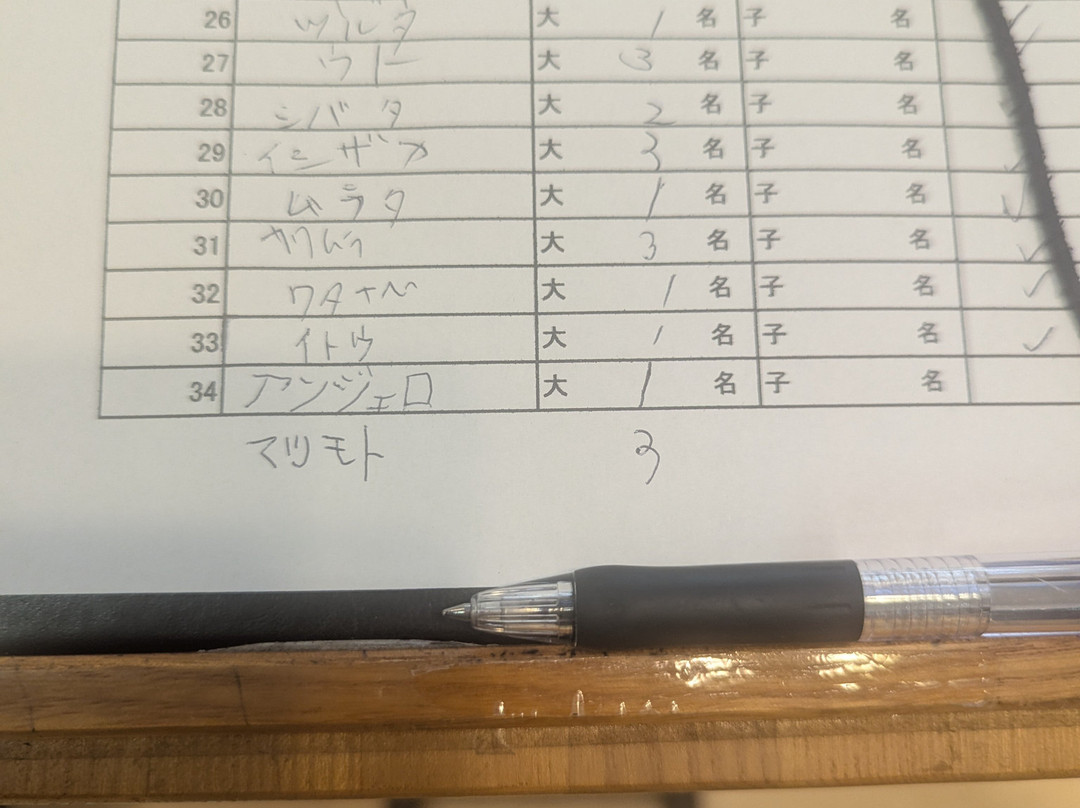 26 ツルタ 大 1 名 子 名
27 ウトー 大 3 名 子 名
28 シバタ 大 2 名 子 名
29 大 3 名 子 名
30 ムラタ 大 1 名 子 名
31 大 3 名 子 名
32 ワタナベ 大 1 名 子 名
33 イトウ 大 1 名 子 名
34 アンジェロ 大 1 名 子 名
マツモト 3